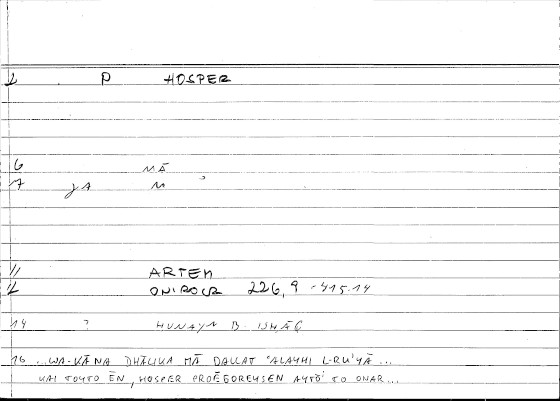 2 P HOSPER
6 MĀ
7 JA M
11 ARTEM
12 ONIROCR 226,9 - 415.14
14 ? HUNAYN B. ISḤĀQ
16 ..WA-KĀNA DHĀLIKA MĀ DALLAT ʿALAYHI L-RUʾYĀ...
KAI TOYTO ĒN, HOSPER PROĒGOREYSEN AYTŌ TO ONAR...